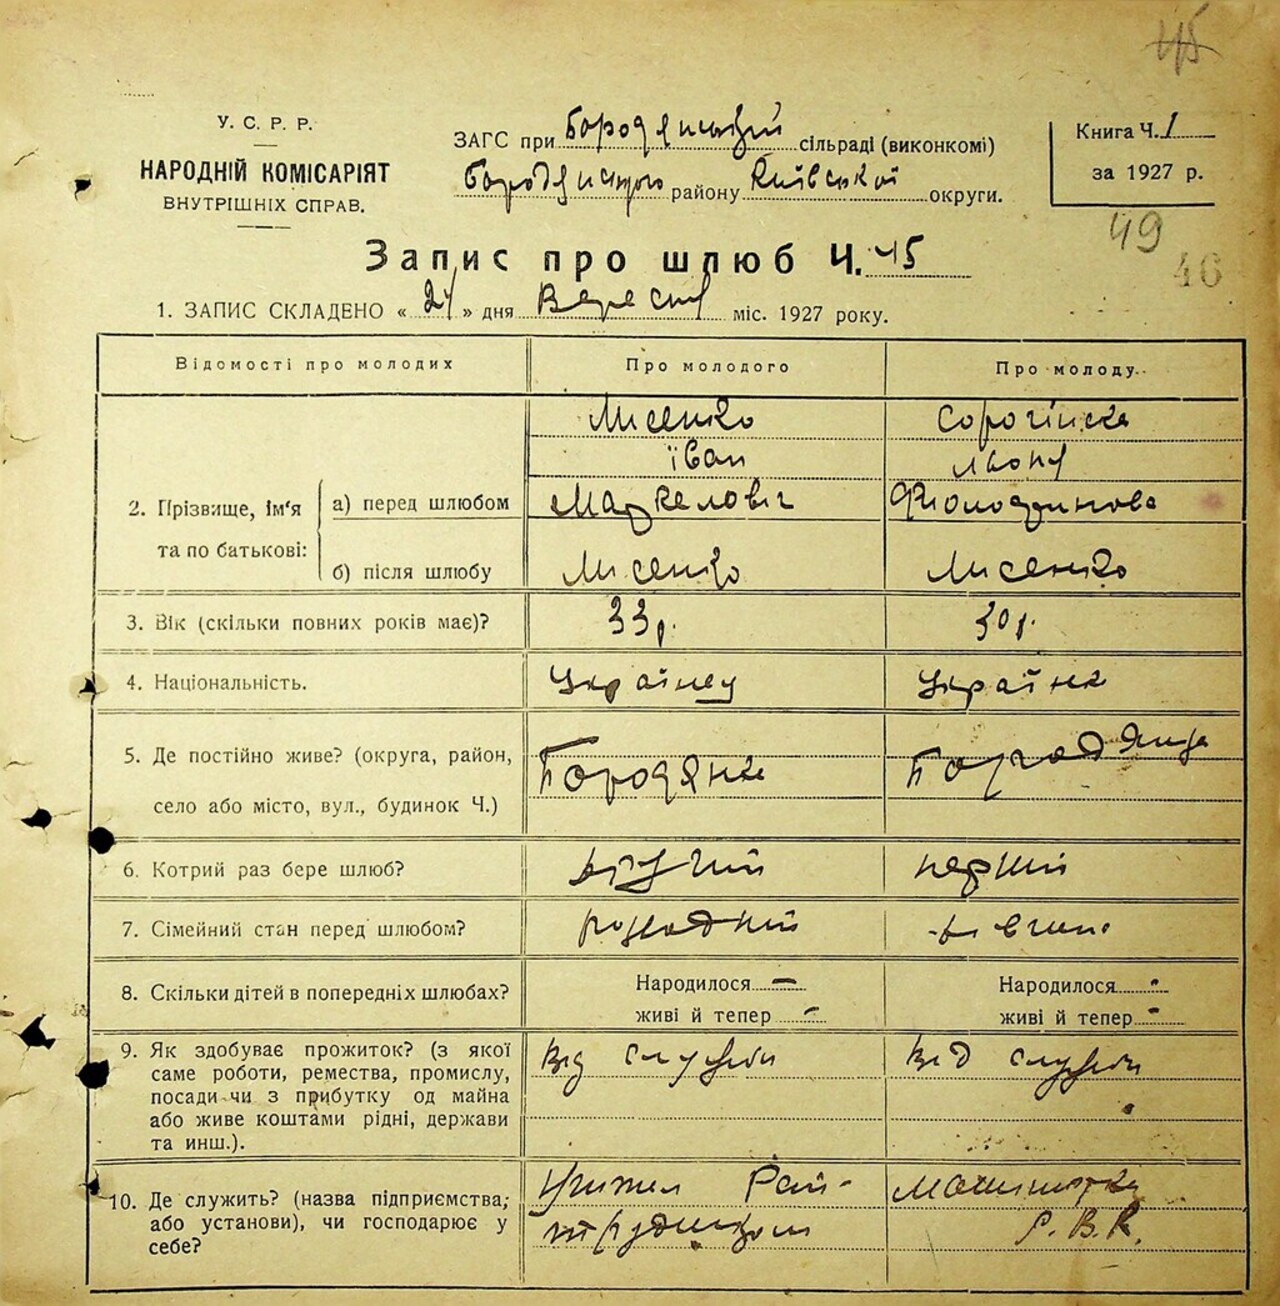 45
У. С. Р. Р.
НАРОДНІЙ КОМІСАРІЯТ
ВНУТРІШНІХ СПРАВ.
ЗАГС при Бородянській сільраді (виконкомі)
Бородянського району Київської округи.
Книга Ч. 1
за 1927 р.
49
46
Запис про шлюб Ч. 45
1. ЗАПИС СКЛАДЕНО « 24 » дня Вересня міс. 1927 року.
Відомості про молодих Про молодого Про молоду
2. Прізвище, ім'я та по батькові:
а) перед шлюбом
Лисенко
Іван
Маркелович
Сорочінска
б) після шлюбу Лисенко Лисенко
3. Вік (скільки повних років має)? 33 р. 30 р.
4. Національність. Українец Українка
5. Де постійно живе? (округа, район,
село або місто, вул., будинок Ч.)
Бородянка
6. Котрий раз бере шлюб? другий перший
7. Сімейний стан перед шлюбом? дівчина
8. Скільки дітей в попередніх шлюбах? Народилося — Народилося -
живі й тепер - живі й тепер -
9. Як здобуває прожиток? (з якої
саме роботи, ремества, промислу,
посади чи з прибутку од майна
або живе коштами рідні, держави
та инш.).
Від служби Від служби
10. Де служить? (назва підприємства,
або установи), чи господарює у
себе?
Учител Рай- Машинистка
Р. В. К.